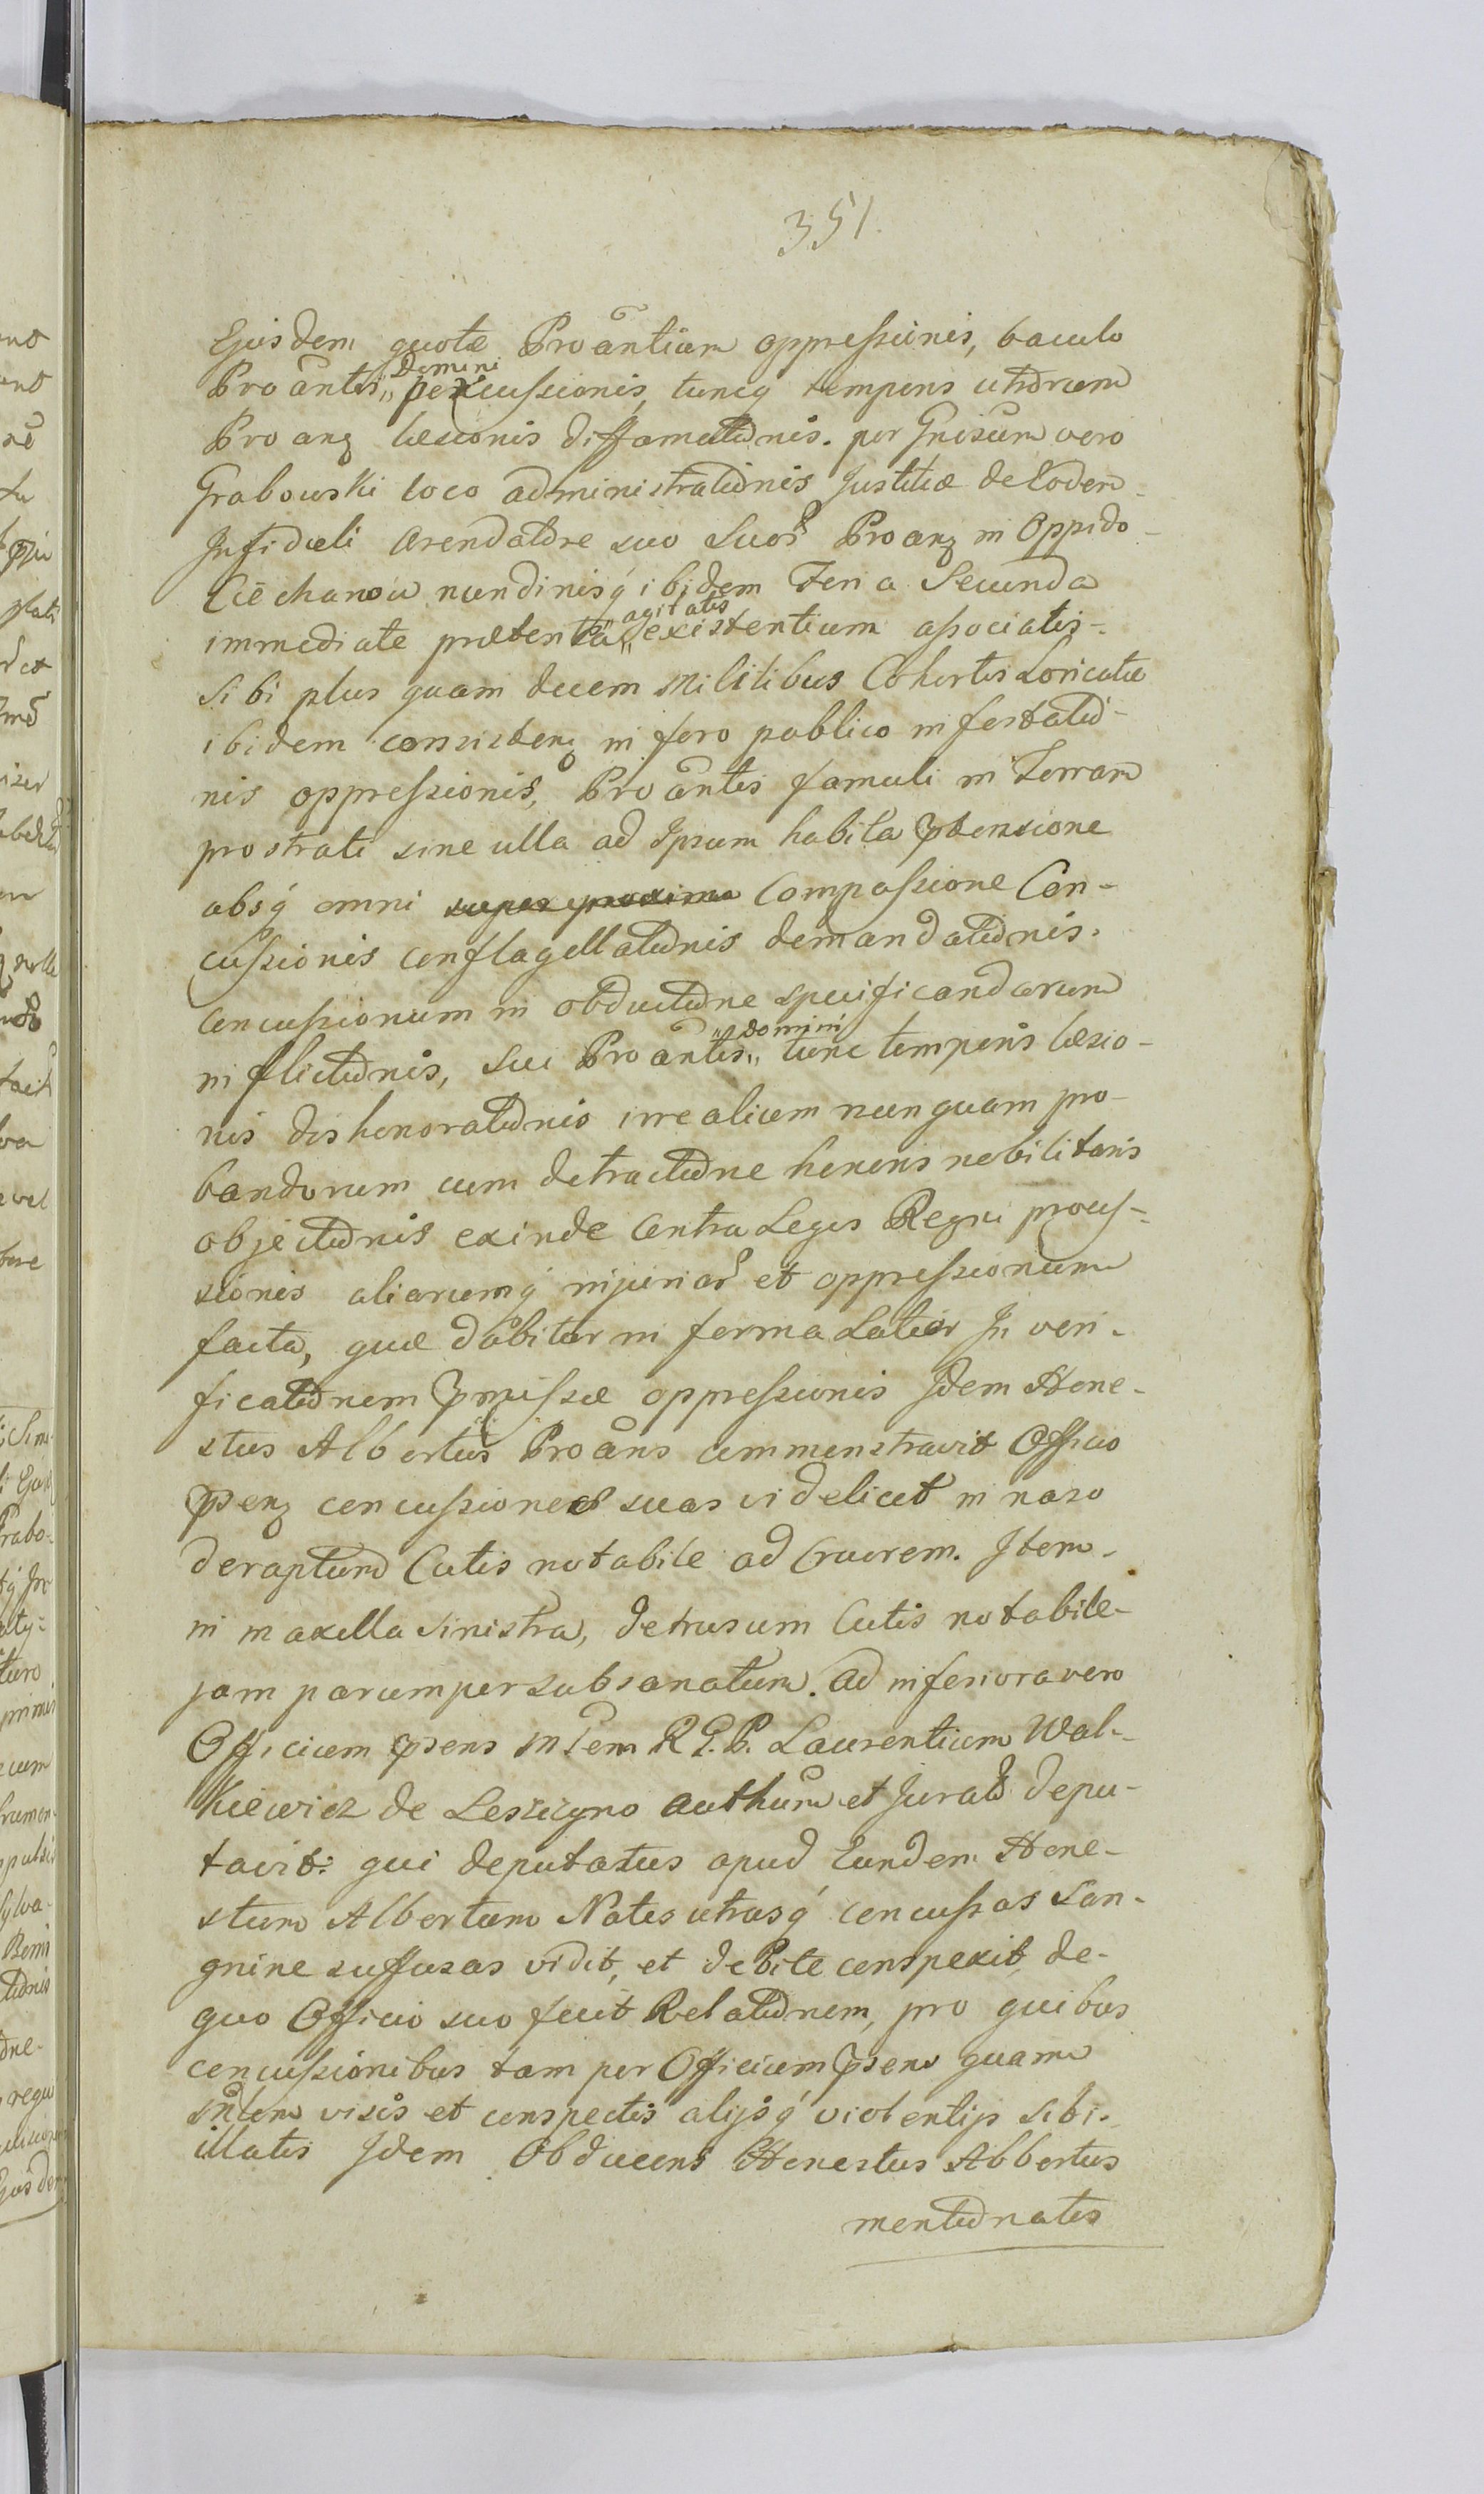 351.
Ejusdem quotæ Proantium oppressionis, baculo
Proantis,, Domini percussionis, tuncq temporis utorum
Proanq læsionis diffamationis. per Gnosum vero
Grabowski loco administrationis Justitiæ de Eodem
Infideli Arendatore suo Suos Proanq in Oppido
Ciechanow nundinisq ibidem Feria Secunda
immediate præterita,, agitatis existentium associatis
Sibi plus quam decem Militibus Cohortis Loricatæ
ibidem consistenq in foro publico infestatio-
nis oppressionis, Proantis famuli in Terram
prostrati sine ulla ad Ipsum habita prtensione
absq omni Compassione Con-
cussionis conflagellationis demandationis.
Concussionum in obductione specificandarum
inflictionis, Sui Proantis,, Domini tunc temporis læsio-
nis dishonorationis irrealium nunquam pro-
bandorum cum detractione honoris nobilitaris
objectionis exinde contra Leges Regni proces-
sionis aliarumq injuriar et oppressionum
facta, quæ dabitur in forma Latior In veri-
ficationem præmissæ oppressionis Idem Hone-
stus Albertus Proans commonstravit Officio
prsenq concussiones suas videlicet in naso
deraptum Cutis notabile ad Cruorem. Item
in maxilla sinistra, detrusum Cutis notabile
jam parumper subsanatum. ad inferiora vero
Officium prsens Mlem R G. P. Laurentium Wal-
kiewicz de Leszczyno Authum et Jurat depu-
tavit: qui deputatus apud Eundem Hone-
stum Albertum Nates utrasq concussas San-
gnine suffusas vidit, et debite conspexit, de-
quo Officio suo fecit Relationem, pro quibus
concussionibus tam per Officium prsens quam
Mlem visis et conspectis alijsq violentijs sibi
illatis Idem Obducens Honestus Albertus
mentionatis